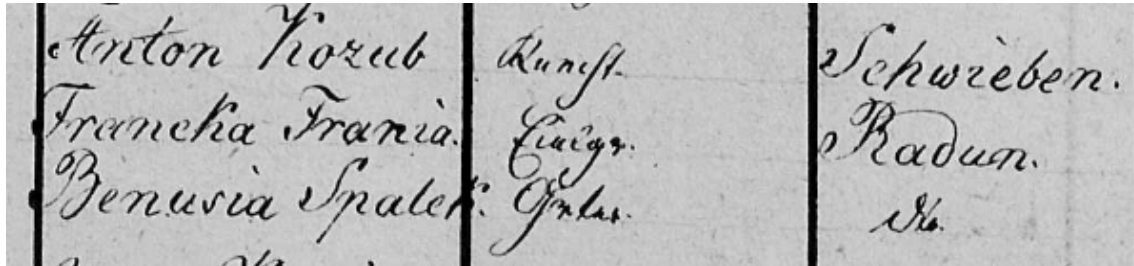 Anton Kozub Knecht. Schwieben.
Francka Frania. Einlgr. Radun.
Benusia Spalek. Gärtner. dto.